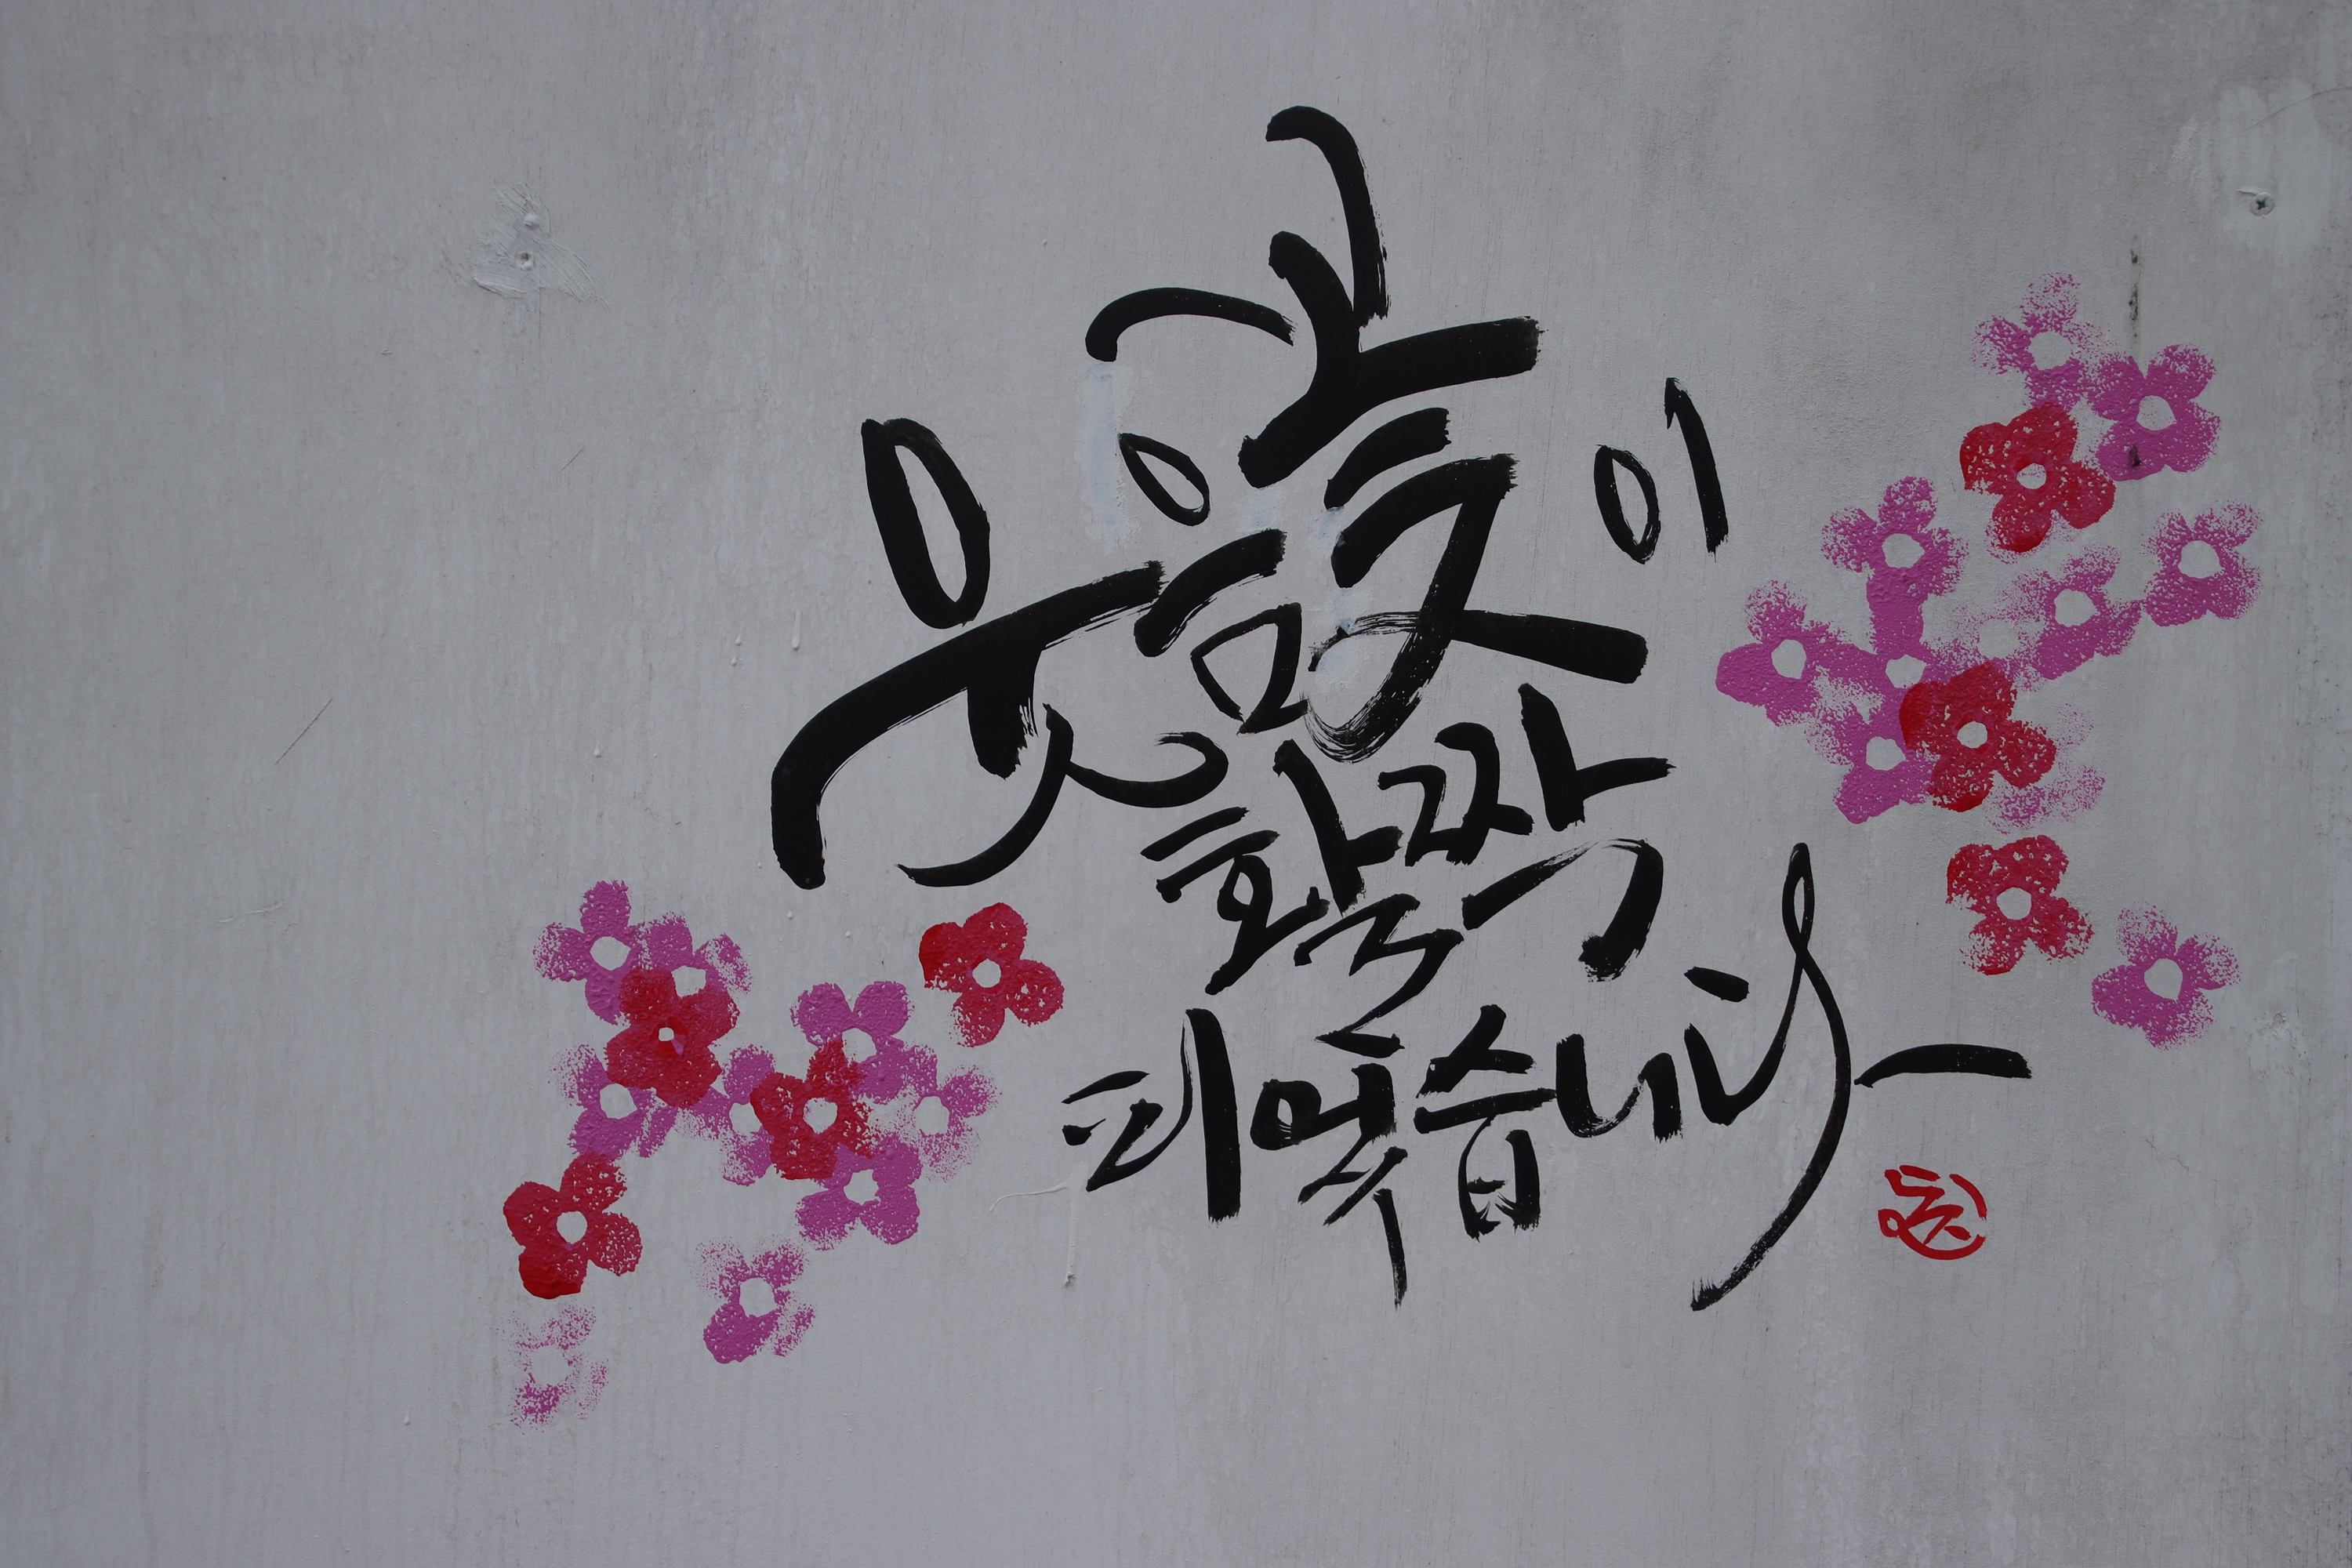 웃음꽃이
활짝
피었습니다